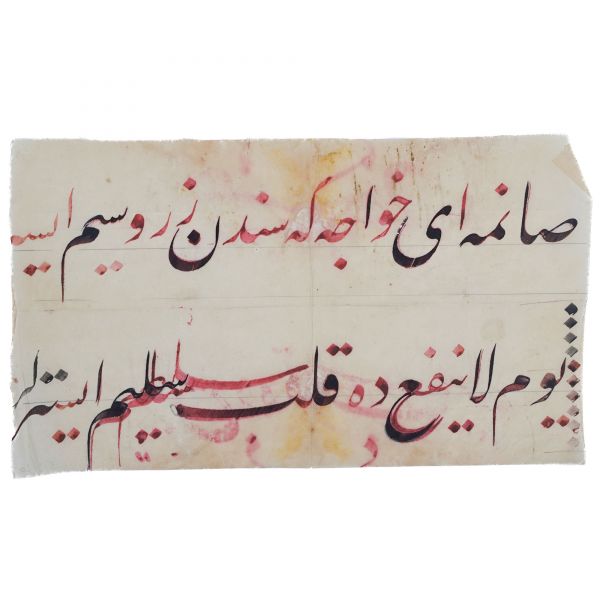 صانمه ای خواجه که سندن زر و سیم ایس
یوم لا ینفع ده قلب سلیم ایسترلر